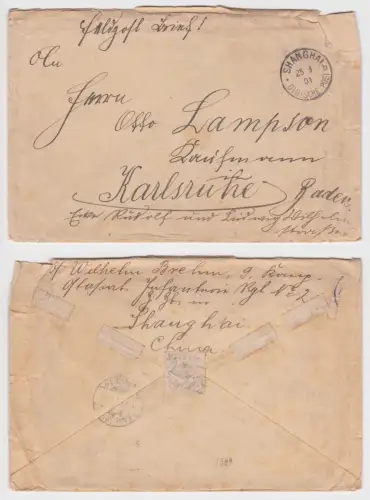 Feldpost Brief!
An
Herrn
Otto Lampson
Kaufmann
in
Karlsruhe Baden
Ecke Rudolf und Ludwig Wilhelm
strasse
SHANGHAI
25 1
01
DEUTSCHE
Wilhelm Brehm, 9. Komp.
Ostasiat. Infanterie Rgt. No 2
Shanghai
China